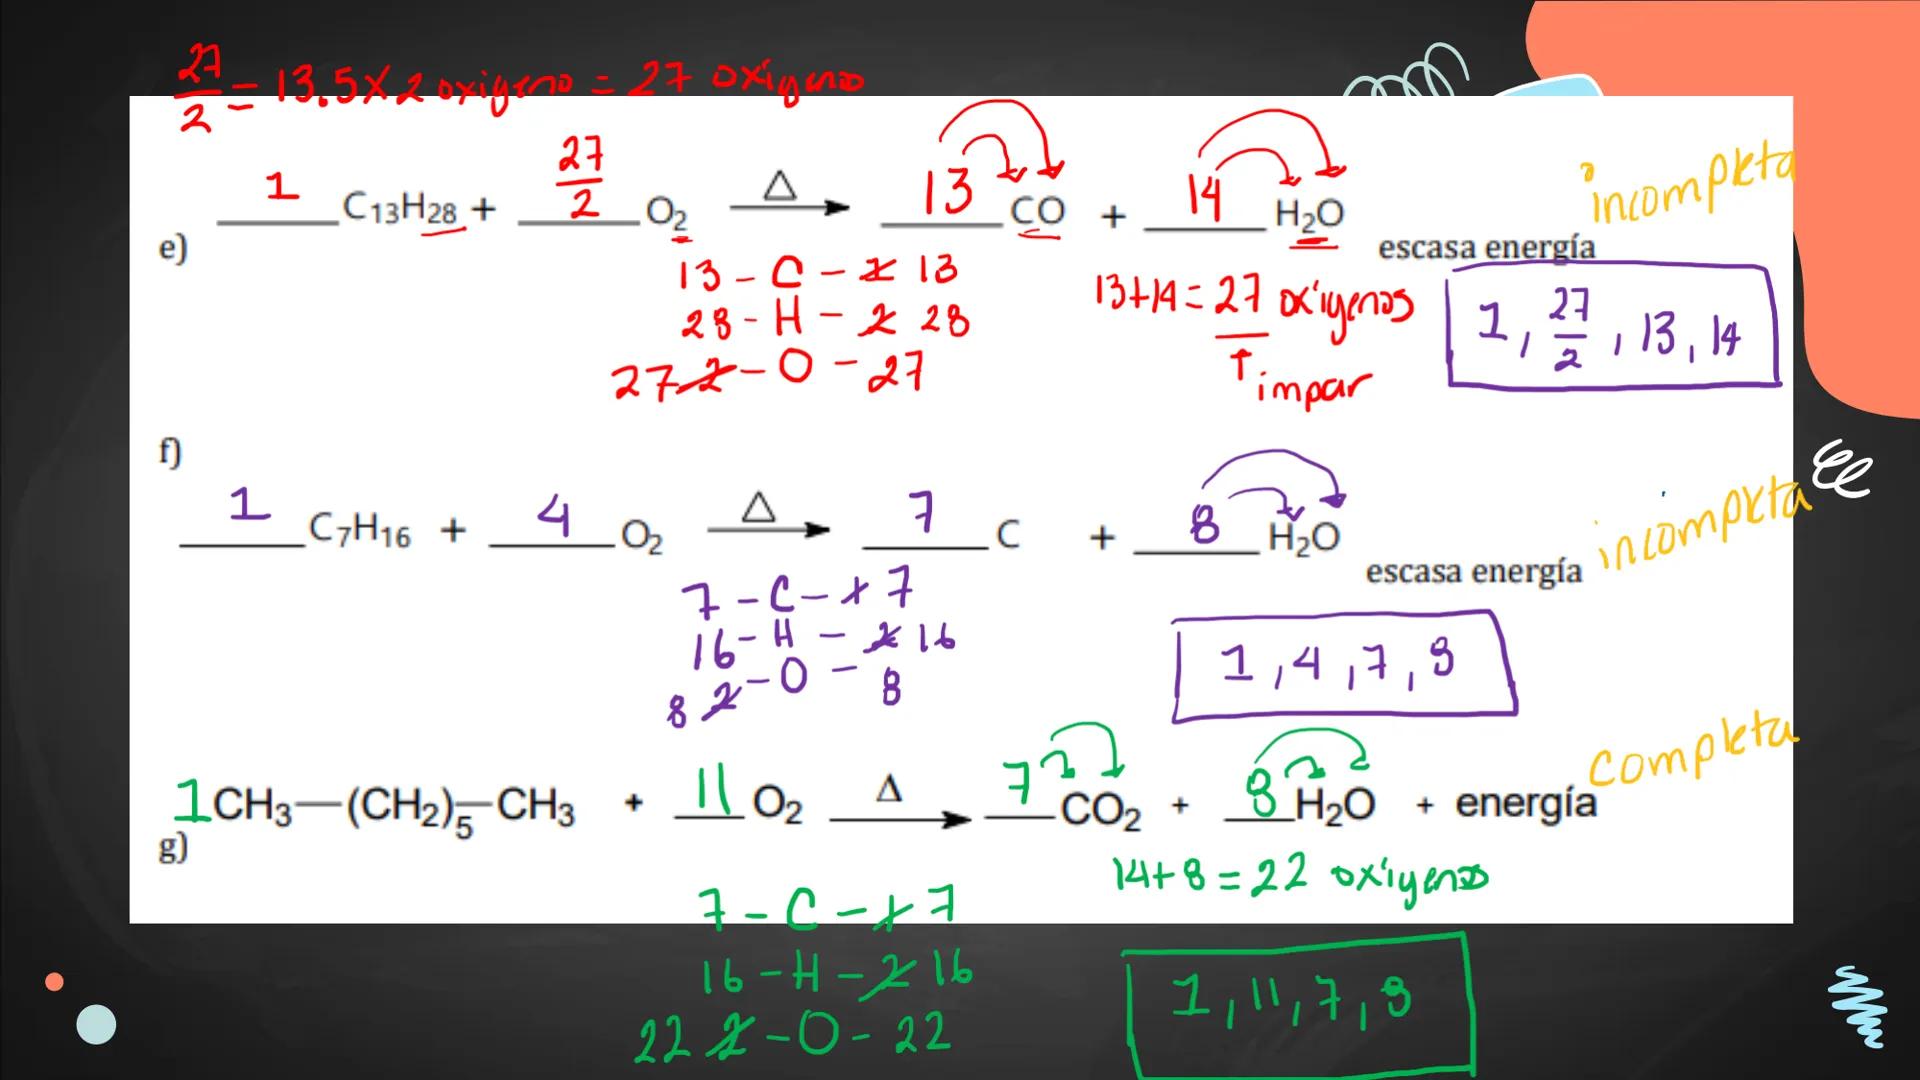 27/2 = 13.5 x 2 oxigeno = 27 oxígenos
e) 1 C13H28 + 27/2 O2 △ → 13 CO + 14 H2O escasa energía incompleta
13 - C - 1 13
28 - H - 2 28
27 2 - O - 27
13+14 = 27 oxígenos
↑ impar
1, 27/2, 13, 14
f) 1 C7H16 + 4 O2 △ → 7 C + 8 H2O escasa energía incompleta
7 - C - 1 7
16 - H - 2 16
8 2 - O - 8
1, 4, 7, 8
g) 1 CH3—(CH2)5—CH3 + 11 O2 Δ → 7 CO2 + 8 H2O + energía completa
14+8 = 22 oxígenos
7 - C - 1 7
16 - H - 2 16
22 2 - O - 22
1, 11, 7, 8